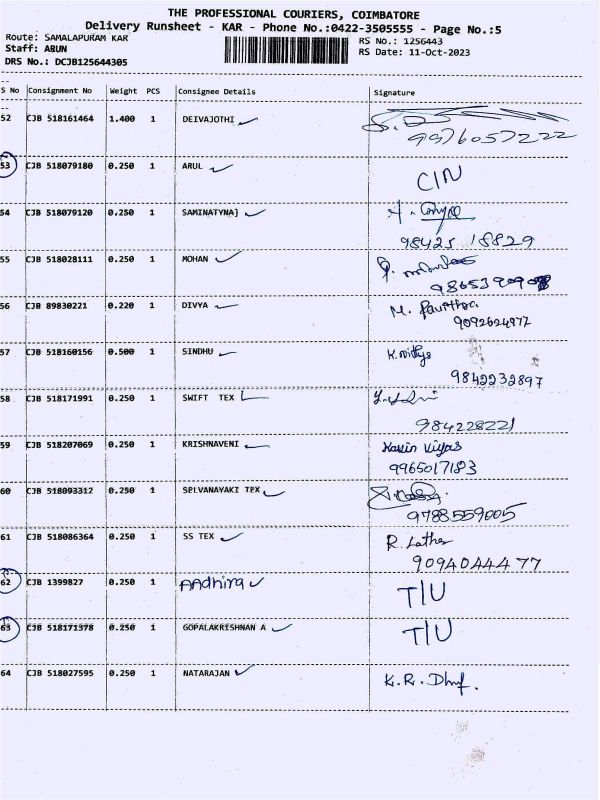 THE PROFESSIONAL COURIERS, COIMBATORE
Delivery Runsheet - KAR - Phone No.:0422-3505555 - Page No.:5
Route: SAMALAPURAM KAR RS No.: 1256443
Staff: ARUN RS Date: 11-Oct-2023
DRS No.: DCJB125644305
S No Consignment No Weight PCS Consignee Details Signature
52 CJB 518161464 1.400 1 DEIVAJOTHI
9976057222
53 CJB 518079180 0.250 1 ARUL CIN
54 CJB 518079120 0.250 1 SAMINATYNA}
98425 18829
55 CJB 518028111 0.250 1 MOHAN
56 CJB 89830221 0.220 1 DIVYA M. Pavithra
9092624977
57 CJB 518160156 0.500 1 SINDHU K. Nithya
9842232897
58 CJB 518171991 0.250 1 SWIFT TEX
984228221
59 CJB 518207069 0.250 1 KRISHNAVENI Kavin Vijyas
9965017183
60 CJB 518093312 0.250 1 SELVANAYAKI TEX
9788559005
61 CJB 518086364 0.250 1 SS TEX R. Latha
9094044477
62 CJB 1399827 0.250 1 AAdhira T/U
63 CJB 518171378 0.250 1 GOPALAKRISHNAN A T/U
64 CJB 518027595 0.250 1 NATARAJAN K.R.